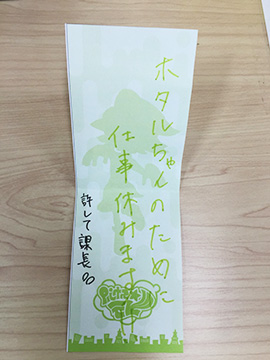 ホタルちゃんのために
仕事休みます
許して課長